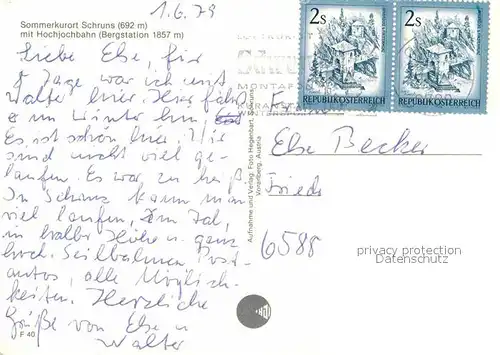 1.6.79
Sommerkurort Schruns (692 m)
mit Hochjochbahn (Bergstation 1857 m)
Liebe Else, für
8 Tage war ich mit
Walter hier. Hier fährt
er im Winter hin.
Es ist schön hier. Wir
sind nicht viel ge-
laufen. Es war zu heiß
In Schruns kann man
viel laufen, Im Tal,
in halber Höhe u. ganz
hoch. Seilbahnen Post-
autos, alle Möglich-
keiten. Herzliche
Grüße von Else u
Walter
F 40
Aufnahme und Verlag: Foto Hegenbart, Schruns
Vorarlberg, Austria
2s
REPUBLIK ÖSTERREICH
2s
REPUBLIK ÖSTERREICH
Schruns
MONTAF
Frau
Else Becker
Frieds
6588
privacy protection
DATENSCHUTZ